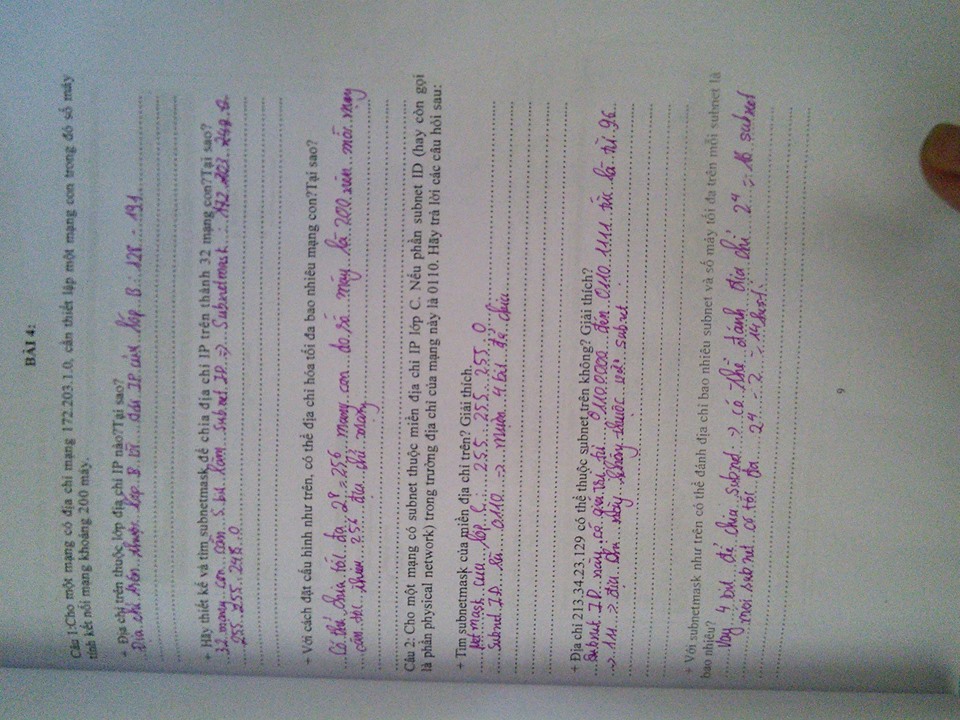 BÀI 4:
Câu 1:Cho một mạng có địa chỉ mạng 172.203.1.0, cần thiết lập một mạng con trong đó số máy
tính kết nối mạng khoảng 200 máy.
+ Địa chỉ trên thuộc lớp địa chỉ IP nào?Tại sao?
Địa chỉ trên thuộc lớp B vì dải IP của lớp B: 128 - 191
+ Hãy thiết kế và tìm subnetmask để chia địa chỉ IP trên thành 32 mạng con?Tại sao?
32 mạng con cần 5 bit làm subnet ID => Subnetmask : 172.203.248.0
255.255.248.0
+ Với cách đặt cấu hình như trên, có thể địa chỉ hóa tối đa bao nhiêu mạng con?Tại sao?
Có thể chứa tối đa 2^8 = 256 mạng con do số máy là 200 nên mỗi mạng
cần có thêm 256 địa chỉ mạng
Câu 2: Cho một mạng có subnet thuộc miền địa chỉ IP lớp C. Nếu phần subnet ID (hay còn gọi
là phần physical network) trong trường địa chỉ của mạng này là 0110. Hãy trả lời các câu hỏi sau:
+ Tìm subnetmask của miền địa chỉ trên? Giải thích.
Net mask của lớp C : 255.255.255.0
Subnet ID là 0110 -> mượn 4 bit để chia
+ Địa chỉ 213.34.23.129 có thể thuộc subnet trên không? Giải thích?
Subnet ID này có giá trị từ 0110.0000 đến 0110 1111 tức là từ 96
-> 111 => địa chỉ này không thuộc với subnet
+ Với subnetmask như trên có thể đánh địa chỉ bao nhiêu subnet và số máy tối đa trên mỗi subnet là
bao nhiêu?
Vay 4 bit để chia subnet -> có thể đánh địa chỉ 2^4 = 16 subnet
mỗi subnet có tối đa 2^4 - 2 = 14 host
9